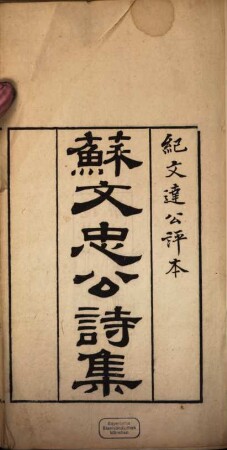 紀文達公評本
蘇文忠公詩集